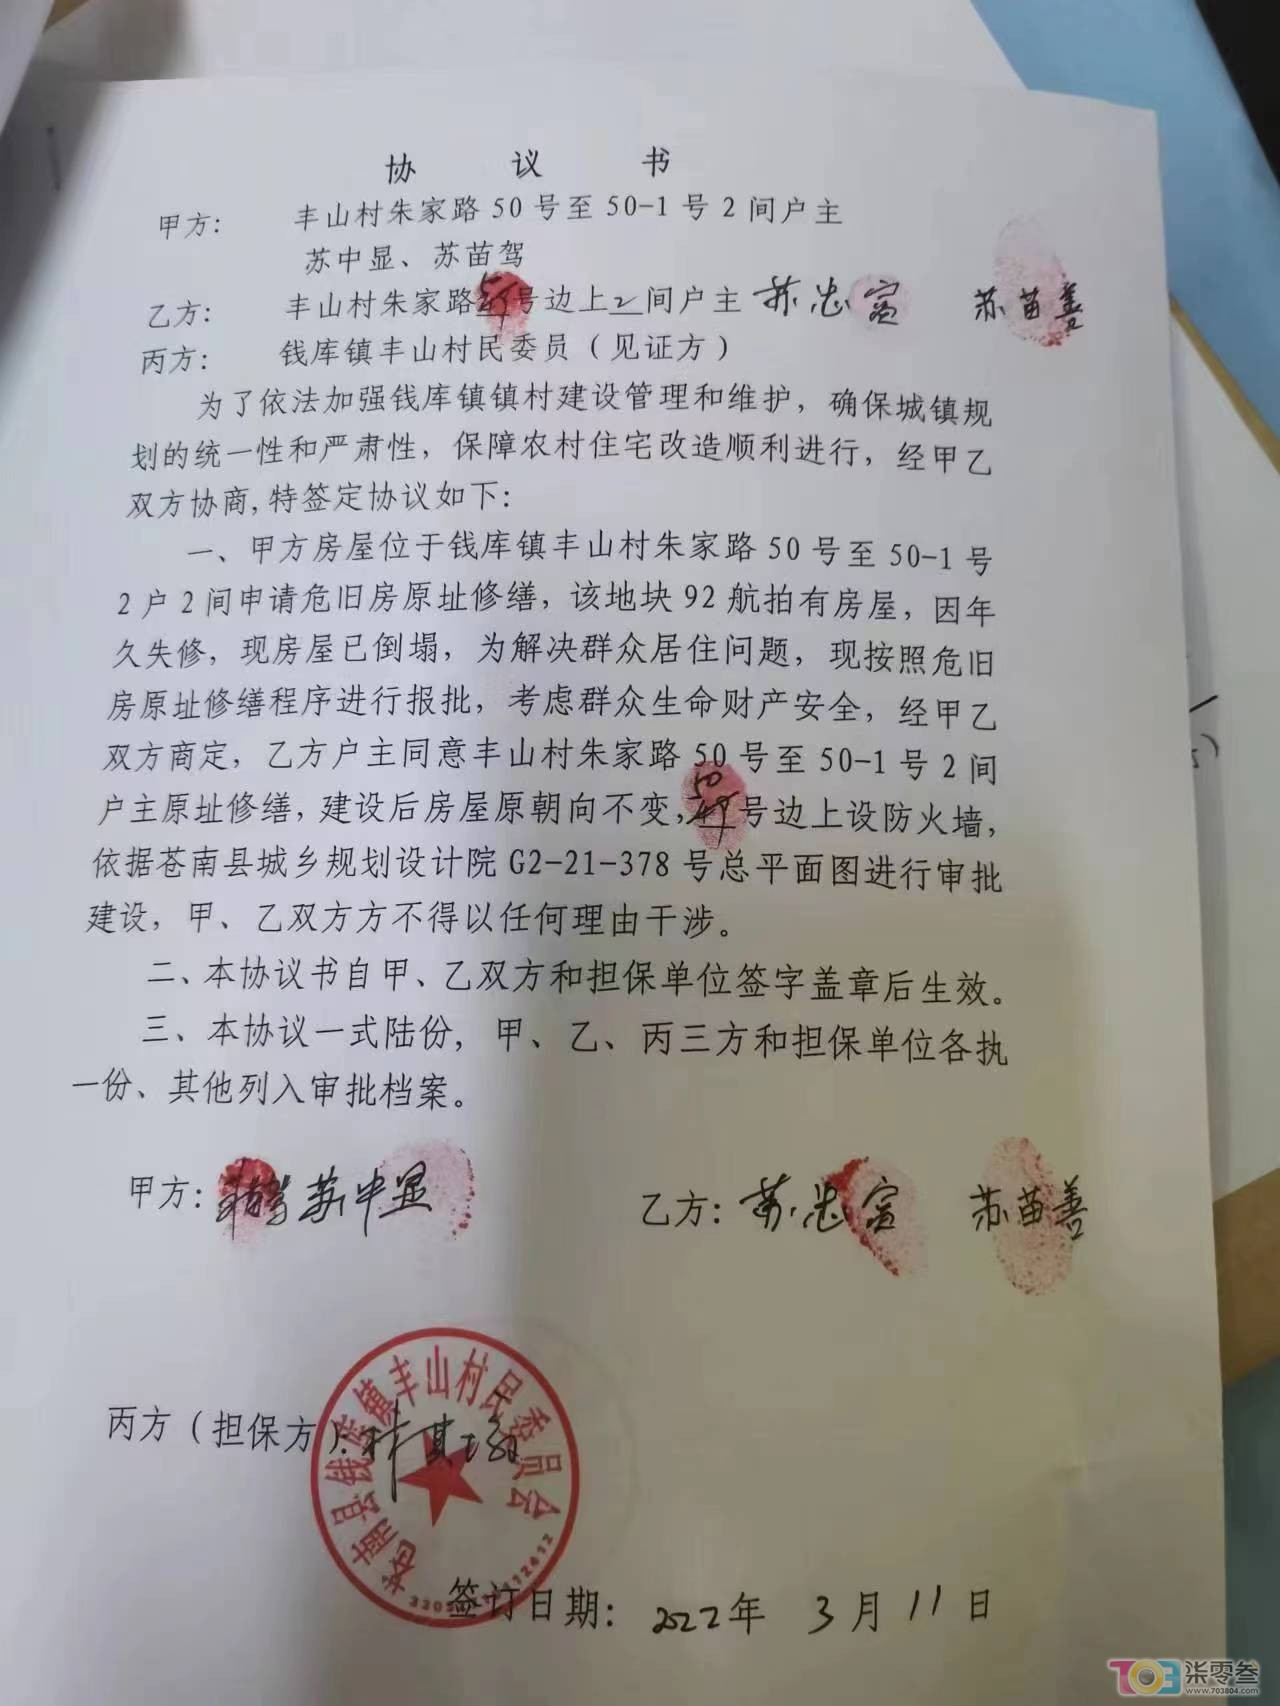 协 议 书
甲方： 丰山村朱家路50号至50-1号2间户主
苏中显、苏苗驾
乙方： 丰山村朱家路 号边上2间户主 苏忠富 苏苗善
丙方： 钱库镇丰山村民委员（见证方）
为了依法加强钱库镇镇村建设管理和维护，确保城镇规
划的统一性和严肃性，保障农村住宅改造顺利进行，经甲乙
双方协商,特签定协议如下：
一、甲方房屋位于钱库镇丰山村朱家路50号至50-1号
2户2间申请危旧房原址修缮，该地块92航拍有房屋，因年
久失修，现房屋已倒塌，为解决群众居住问题，现按照危旧
房原址修缮程序进行报批，考虑群众生命财产安全，经甲乙
双方商定，乙方户主同意丰山村朱家路50号至50-1号2间
户主原址修缮，建设后房屋原朝向不变，50号边上设防火墙，
依据苍南县城乡规划设计院G2-21-378号总平面图进行审批
建设，甲、乙双方方不得以任何理由干涉。
二、本协议书自甲、乙双方和担保单位签字盖章后生效。
三、本协议一式陆份，甲、乙、丙三方和担保单位各执
一份、其他列入审批档案。
甲方： 苏中显 乙方：苏忠富 苏苗善
苍南县钱库镇丰山村民委员会
丙方（担保方）：
签订日期：2022年 3月11日
703 柒零叁
www.703804.com